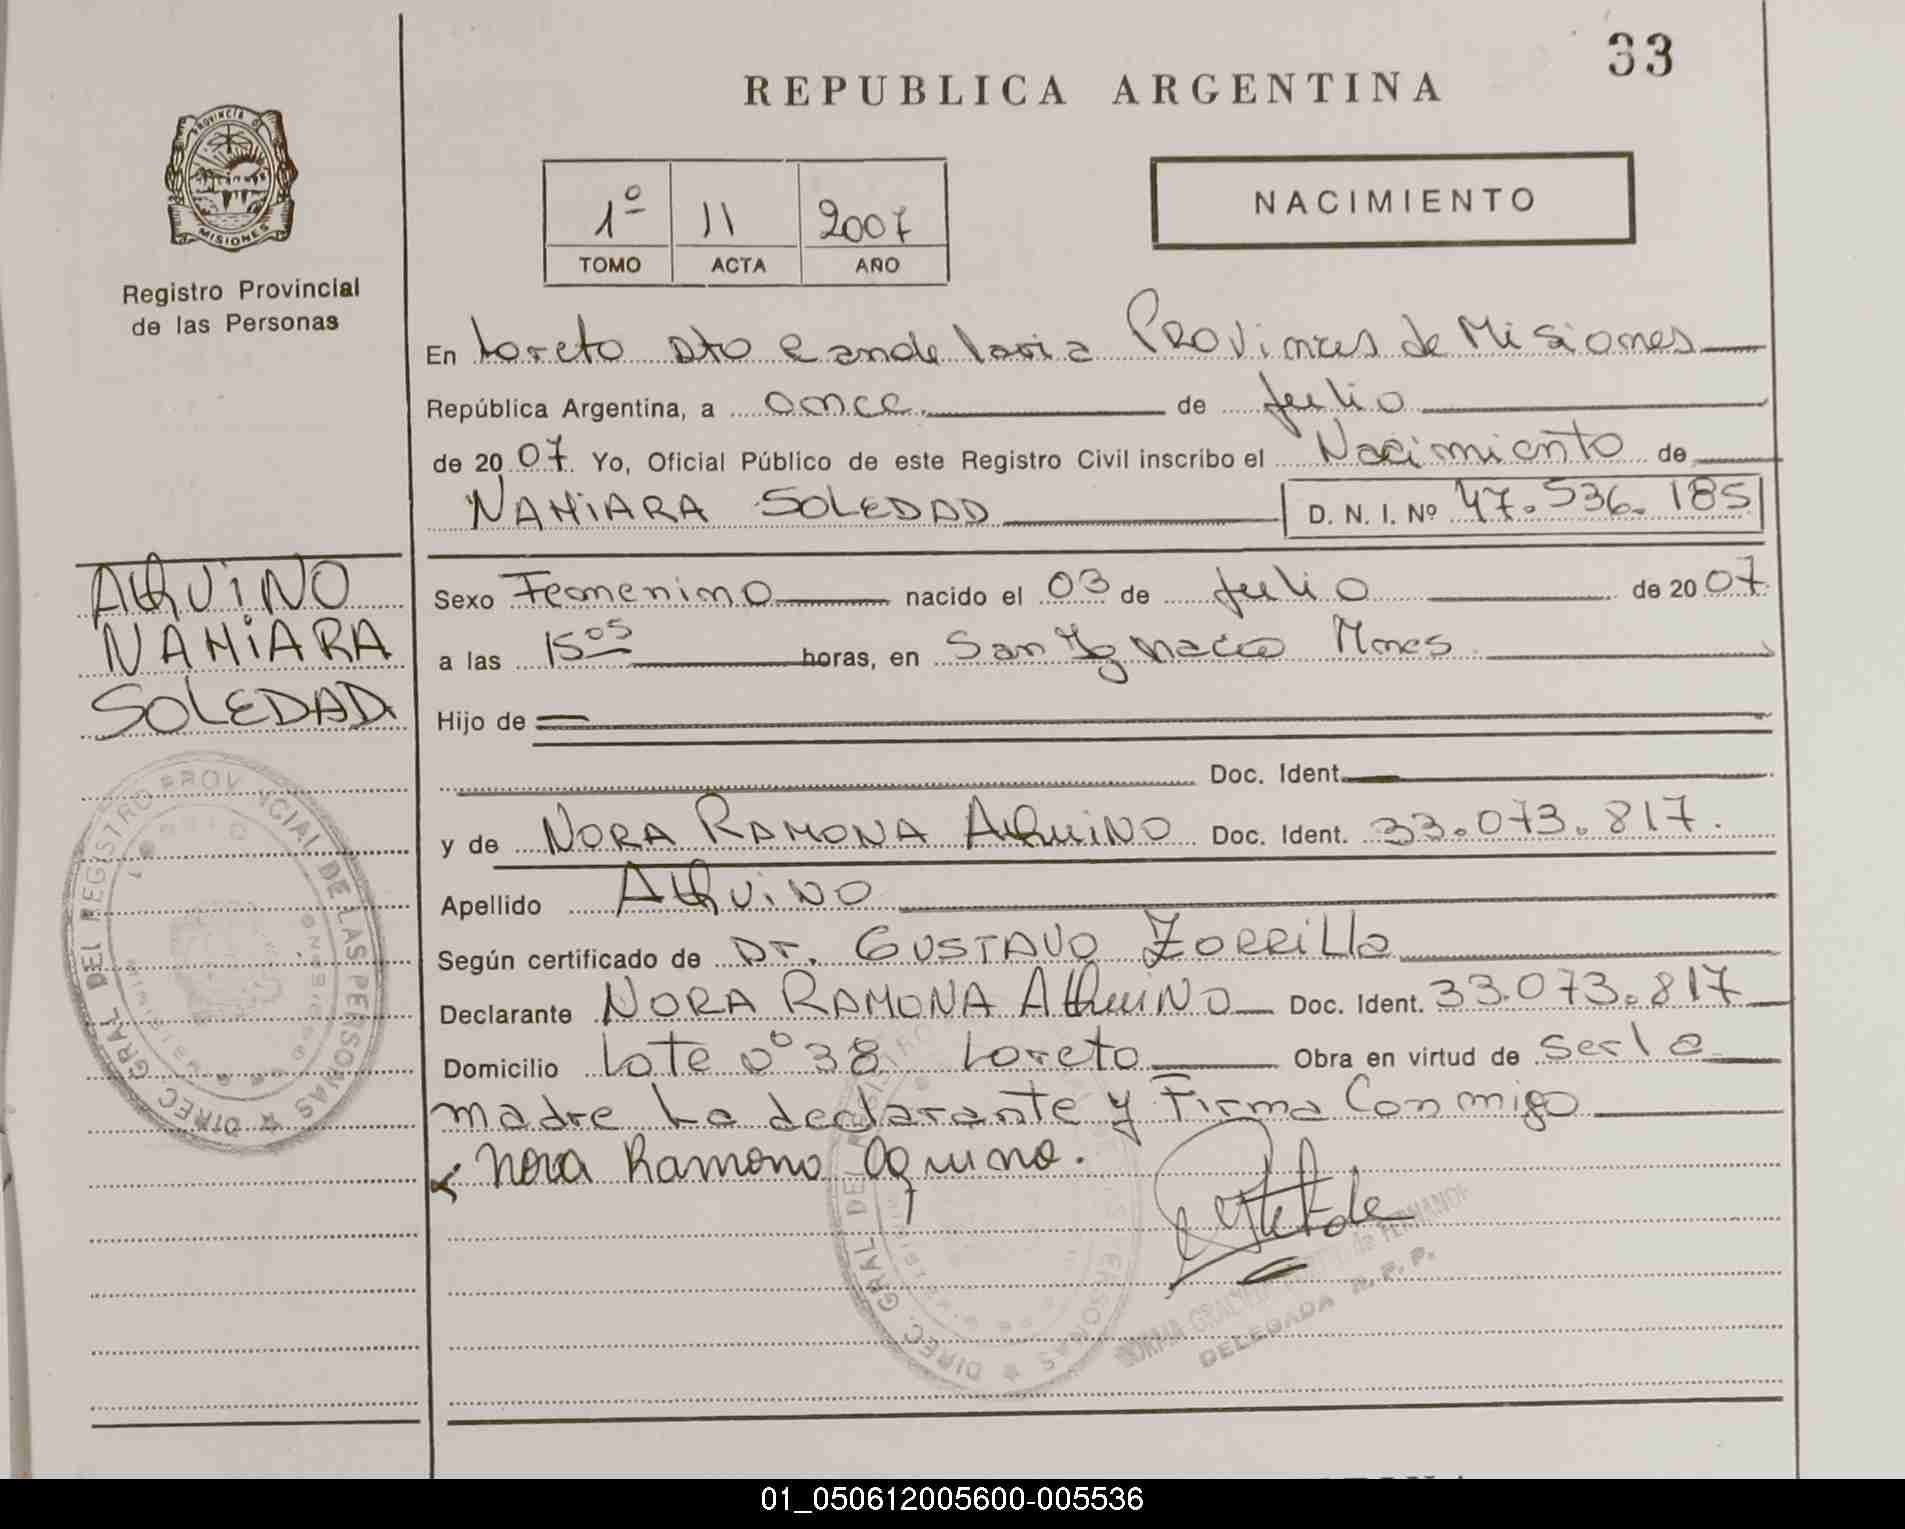 33
REPUBLICA ARGENTINA
PROVINCIA DE
MISIONES
Registro Provincial
de las Personas
1º 11 2007
TOMO ACTA AÑO
NACIMIENTO
En Loreto Dto Candelaria Provincias de Misiones
República Argentina, a once de Julio
de 2007. Yo, Oficial Público de este Registro Civil inscribo el Nacimiento de
NAHIARA SOLEDAD D. N. I. Nº 47.536.185
AQUINO
NAHIARA
SOLEDAD
Sexo Femenino nacido el 03 de Julio de 2007.
a las 15 05 horas, en San Ygnacio Mnes
Hijo de
Doc. Ident.
y de NORA RAMONA AQUINO Doc. Ident. 33.073.817.
Apellido AQUINO
Según certificado de Dr. GUSTAVO ZORRILLA
Declarante NORA RAMONA AQUINO Doc. Ident. 33.073.817
Domicilio Lote nº 38 Loreto Obra en virtud de ser la
madre La declarante y Firma Conmigo
Nora Ramona Aquino.
DIREC. GRAL. DEL REGISTRO PROVINCIAL DE LAS PERSONAS
DIREC. GRAL. DEL
de FERNANDEZ
DELEGADA R. P. P.
01_050612005600-005536